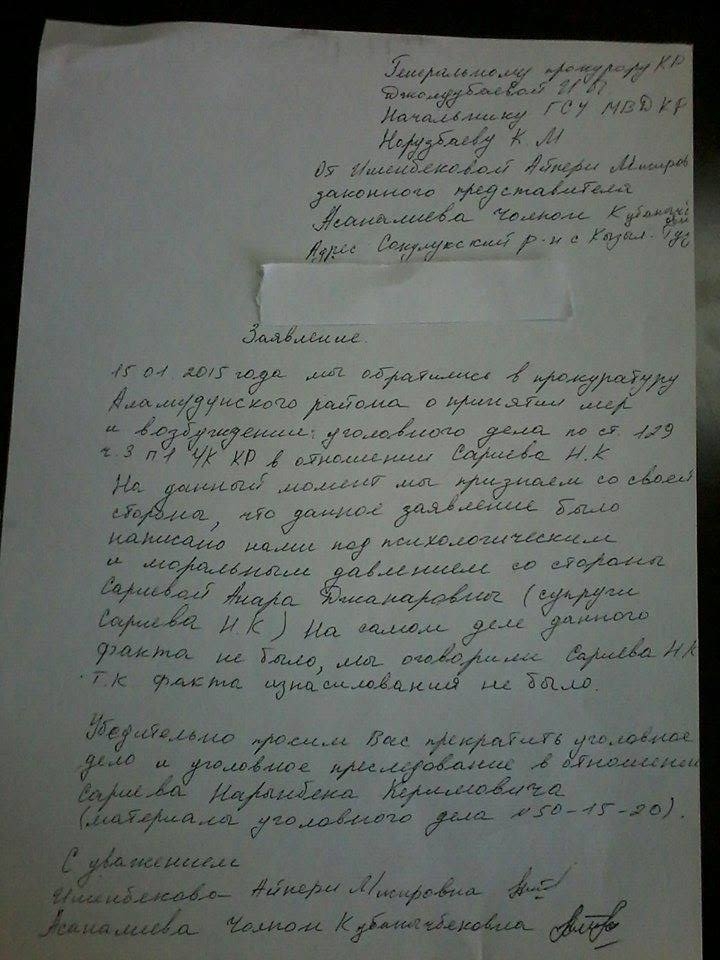 Генеральному прокурору КР
Джолдубаевой И П
Начальнику ГСУ МВД КР
Норузбаеву К М
От Ишенбековой Айпери
законного представителя
Асаналиева Чолпон
Адрес Сокулукский р-н с Кызыл-Туу
Заявление.
15 01. 2015 года мы обратились в прокуратуру
Аламудунского района о принятии мер
и возбуждении уголовного дела по ст. 129
ч. 3 п 1 УК КР в отношении Сариева Н.К
На данный момент мы признаем со своей
стороны, что данное заявление было
написано нами под психологическим
и моральным давлением со стороны
Сариевой Анара Джапаровны (супруги
Сариева Н.К) На самом деле данного
факта не было, мы оговорили Сариева Н К
т.к факта изнасилования не было.
Убедительно просим Вас прекратить уголовное
дело и уголовное преследование в отношении
Сариева Нарынбека Керимовича
(материалы уголовного дела №50-15-20).
С уважением
Ишенбекова Айпери
Асаналиева Чолпон Кубанычбековна